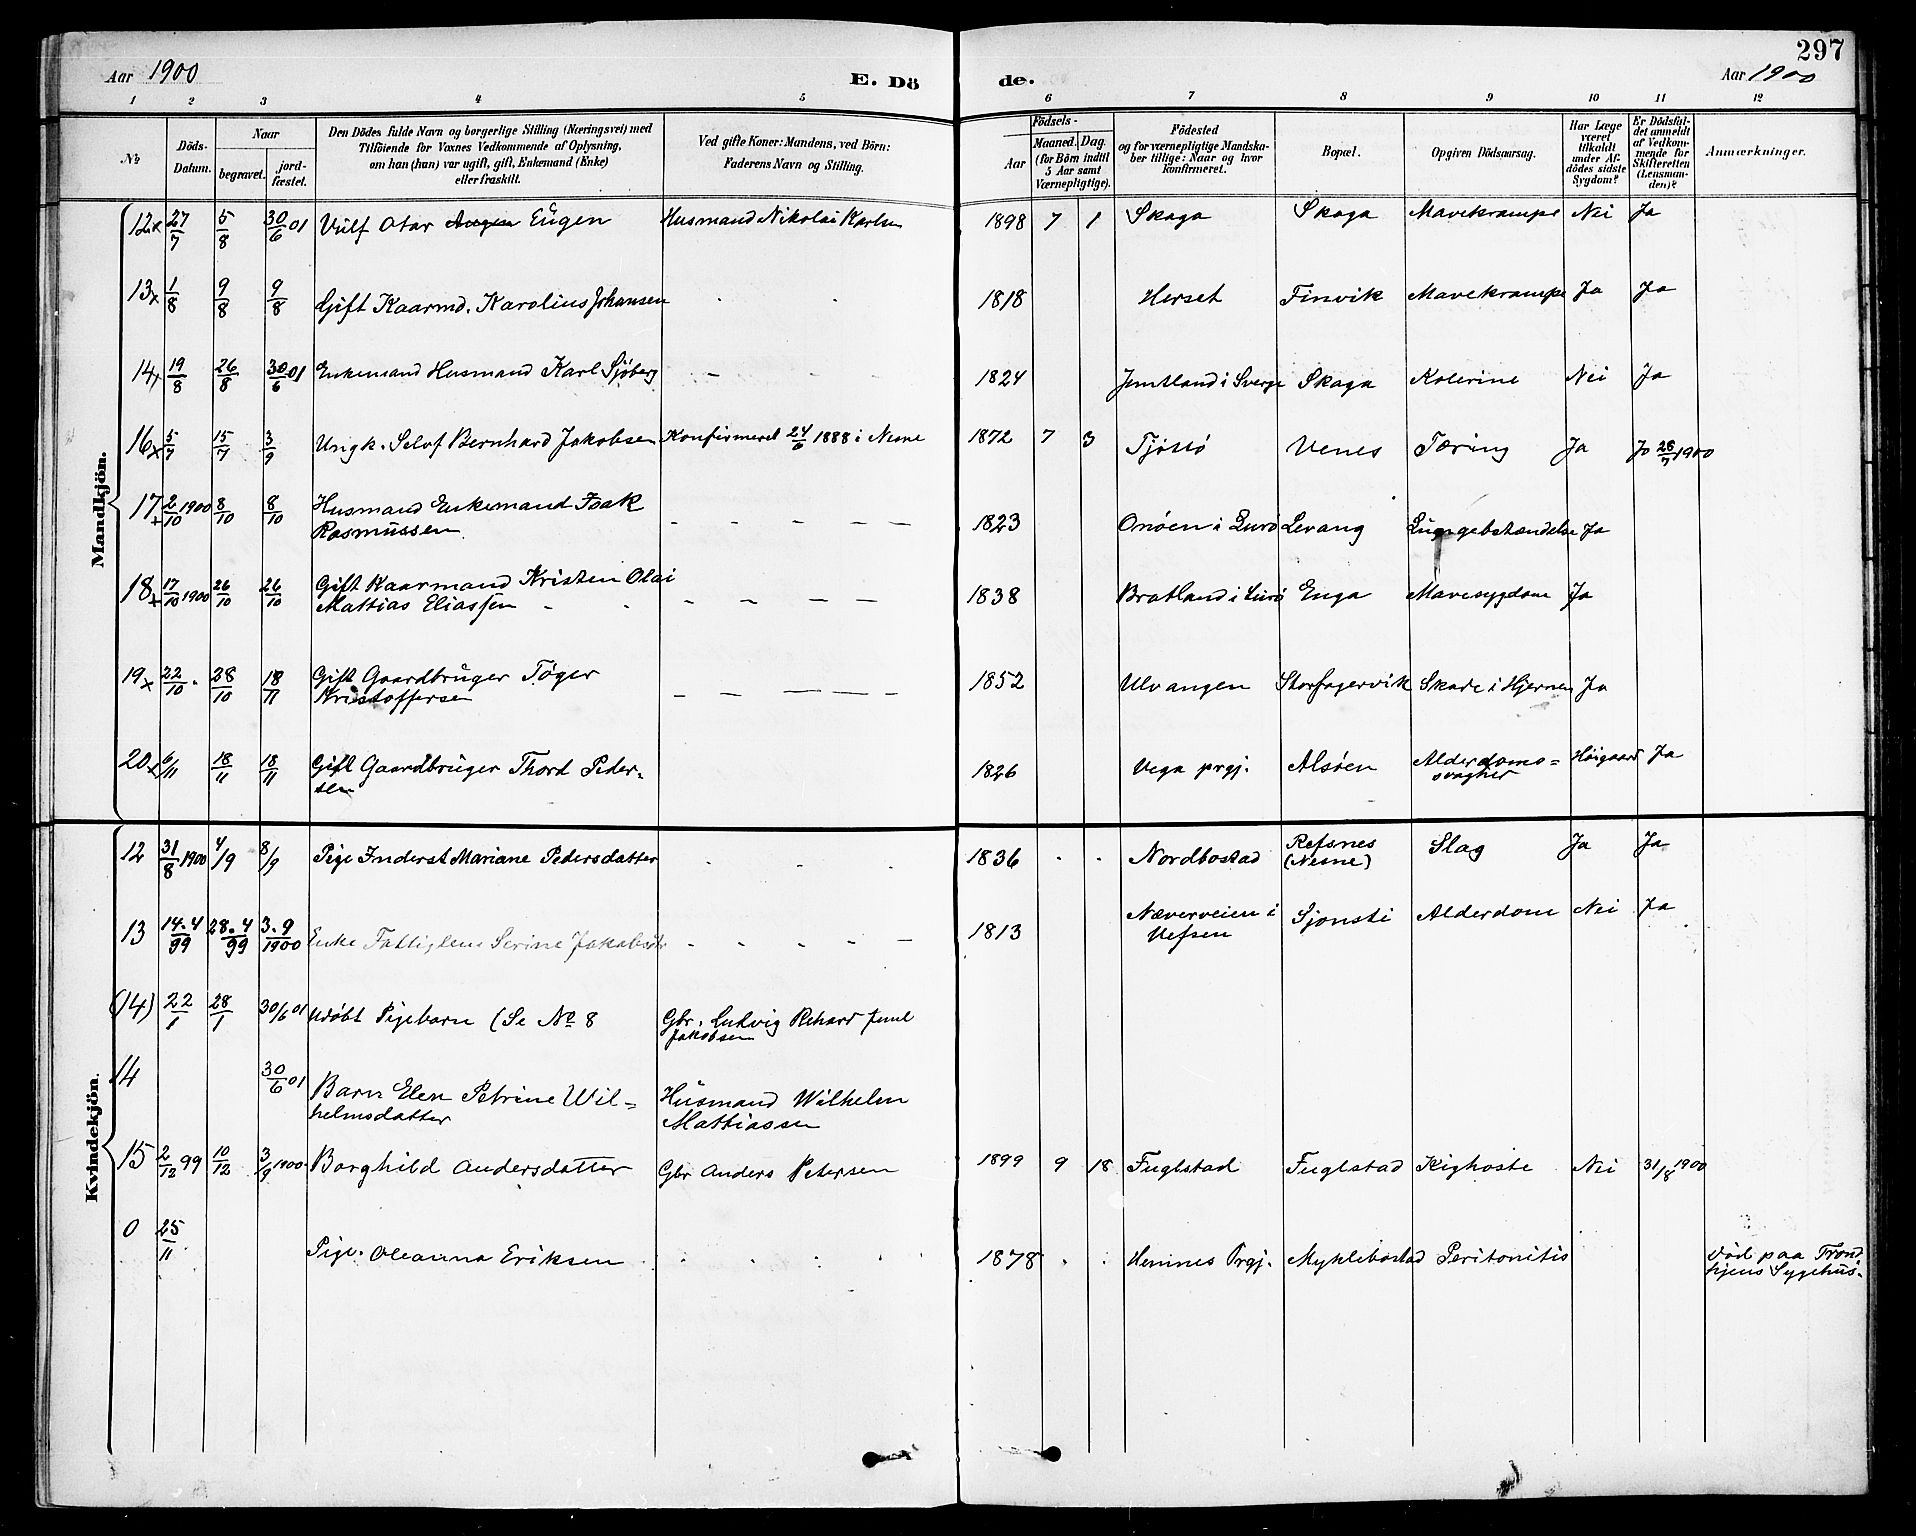 Aar 1900
E. Dö
de.
297
Aar 1900
1 2 3 4 5 6 7 8 9 10 11 12
No
Döds-Datum.
Naar
begravet.
jordfæstet.
Den Dödes fulde Navn og borgerlige Stilling (Næringsvei) med
Tilföiende for Voxnes Vedkommende af Oplysning,
om han (hun) var ugift, gift, Enkemand (Enke)
eller fraskilt.
Ved gifte Koner: Mandens, ved Börn:
Faderens Navn og Stilling.
Födsels-
Aar
Maaned. Dag.
(for Börn indtil
5 Aar samt
Værnepligtige).
Födested
og for værnepligtige Mandska-
ber tillige: Naar og hvor
konfirmeret.
Bopæl.
Opgiven Dödsaarsag.
Har Læge
været
tilkaldt
under Af-
dödes sidste
Sygdom?
Er Dödsfal-
det anmeldt
af Vedkom-
mende for
Skifteretten
(Lensman-
den)?
Anmærkninger.
Mandkjön.
12x 27/7 5/8 30/6 01 Vulf Otar Eugen Husmand Nikolai Karlsen 1898 7 1 Skaga Skaga Mavekrampe Nei Ja
13x 1/8 9/8 9/8 Gift Kaarmd. Karolius Johansen 1818 Herset Finvik Mavekrampe Ja Ja
14x 19/8 26/8 30/6 01 Enkemand Husmand Karl Sjöberg - - 1824 Jemtland i Sverge Skaga Kolerine Nei Ja
16x 5/7 15/7 3/9 Ungk. Selvf Bernhard Jakobsen Konfirmeret 24/6 1888 i Nesne 1872 7 3 Venes Tæring Ja Ja 28/7 1900
17x 2/10 1900 8/10 8/10 Husmand Enkemand Isak
Rasmussen - - - - - 1823 Onöen i Lurö Levang Lungebetændelse Ja
18x 17/10 1900 26/10 26/10 Gift Kaarmand Kristen Olai
Mattias Eliassen - - - - 1838 Bratland i Lurö Enga Mavesygdom Ja
19x 22/10 28/10 18/11 Gift Gaardbruger Töger
Kristoffersen - - - - - 1852 Ulvangen Storfagervik Skade i Hjernen Ja
20x 6/11 18/11 18/11 Gift Gaardbruger Thord Peder-
sen 1826 Vega prgj. Alsöen Alderdoms-
svaghed Höigaard Ja
Kvindekjön.
12 31/8 1900 4/9 8/9 Pige Inderst Mariane Pedersdatter 1836 Nordbostad Refsnes
(Nesne) Slag Ja Ja
13 14.4/99 28.4/99 3.9/1900 Enke Fattiglem Serine Jakobsdtr - - - - 1813 Næverveien i
Vefsen Sjonsti Alderdom Nei Ja
(14) 22/1 28/1 30/6 01 Udöbt Pigebarn (Se No 8 Gbr. Ludvig Rikard Juul
Jakobsen
14 30/6 01 Barn Elen Petrine Wil-
helmsdatter Husmand Wilhelm
Mattiassen
15 2/12 99 10/12 3/9 1900. Borghild Andersdatter Gbr Anders Petersen 1899 9 18 Fuglstad Fuglstad Kighoste Nei 31/8 1900
0 25/11 Pige. Oleanna Eriksen 1878 Hemnes Prgj. Myklebostad Peritonitis Död paa Trond
hjems Sygehus.